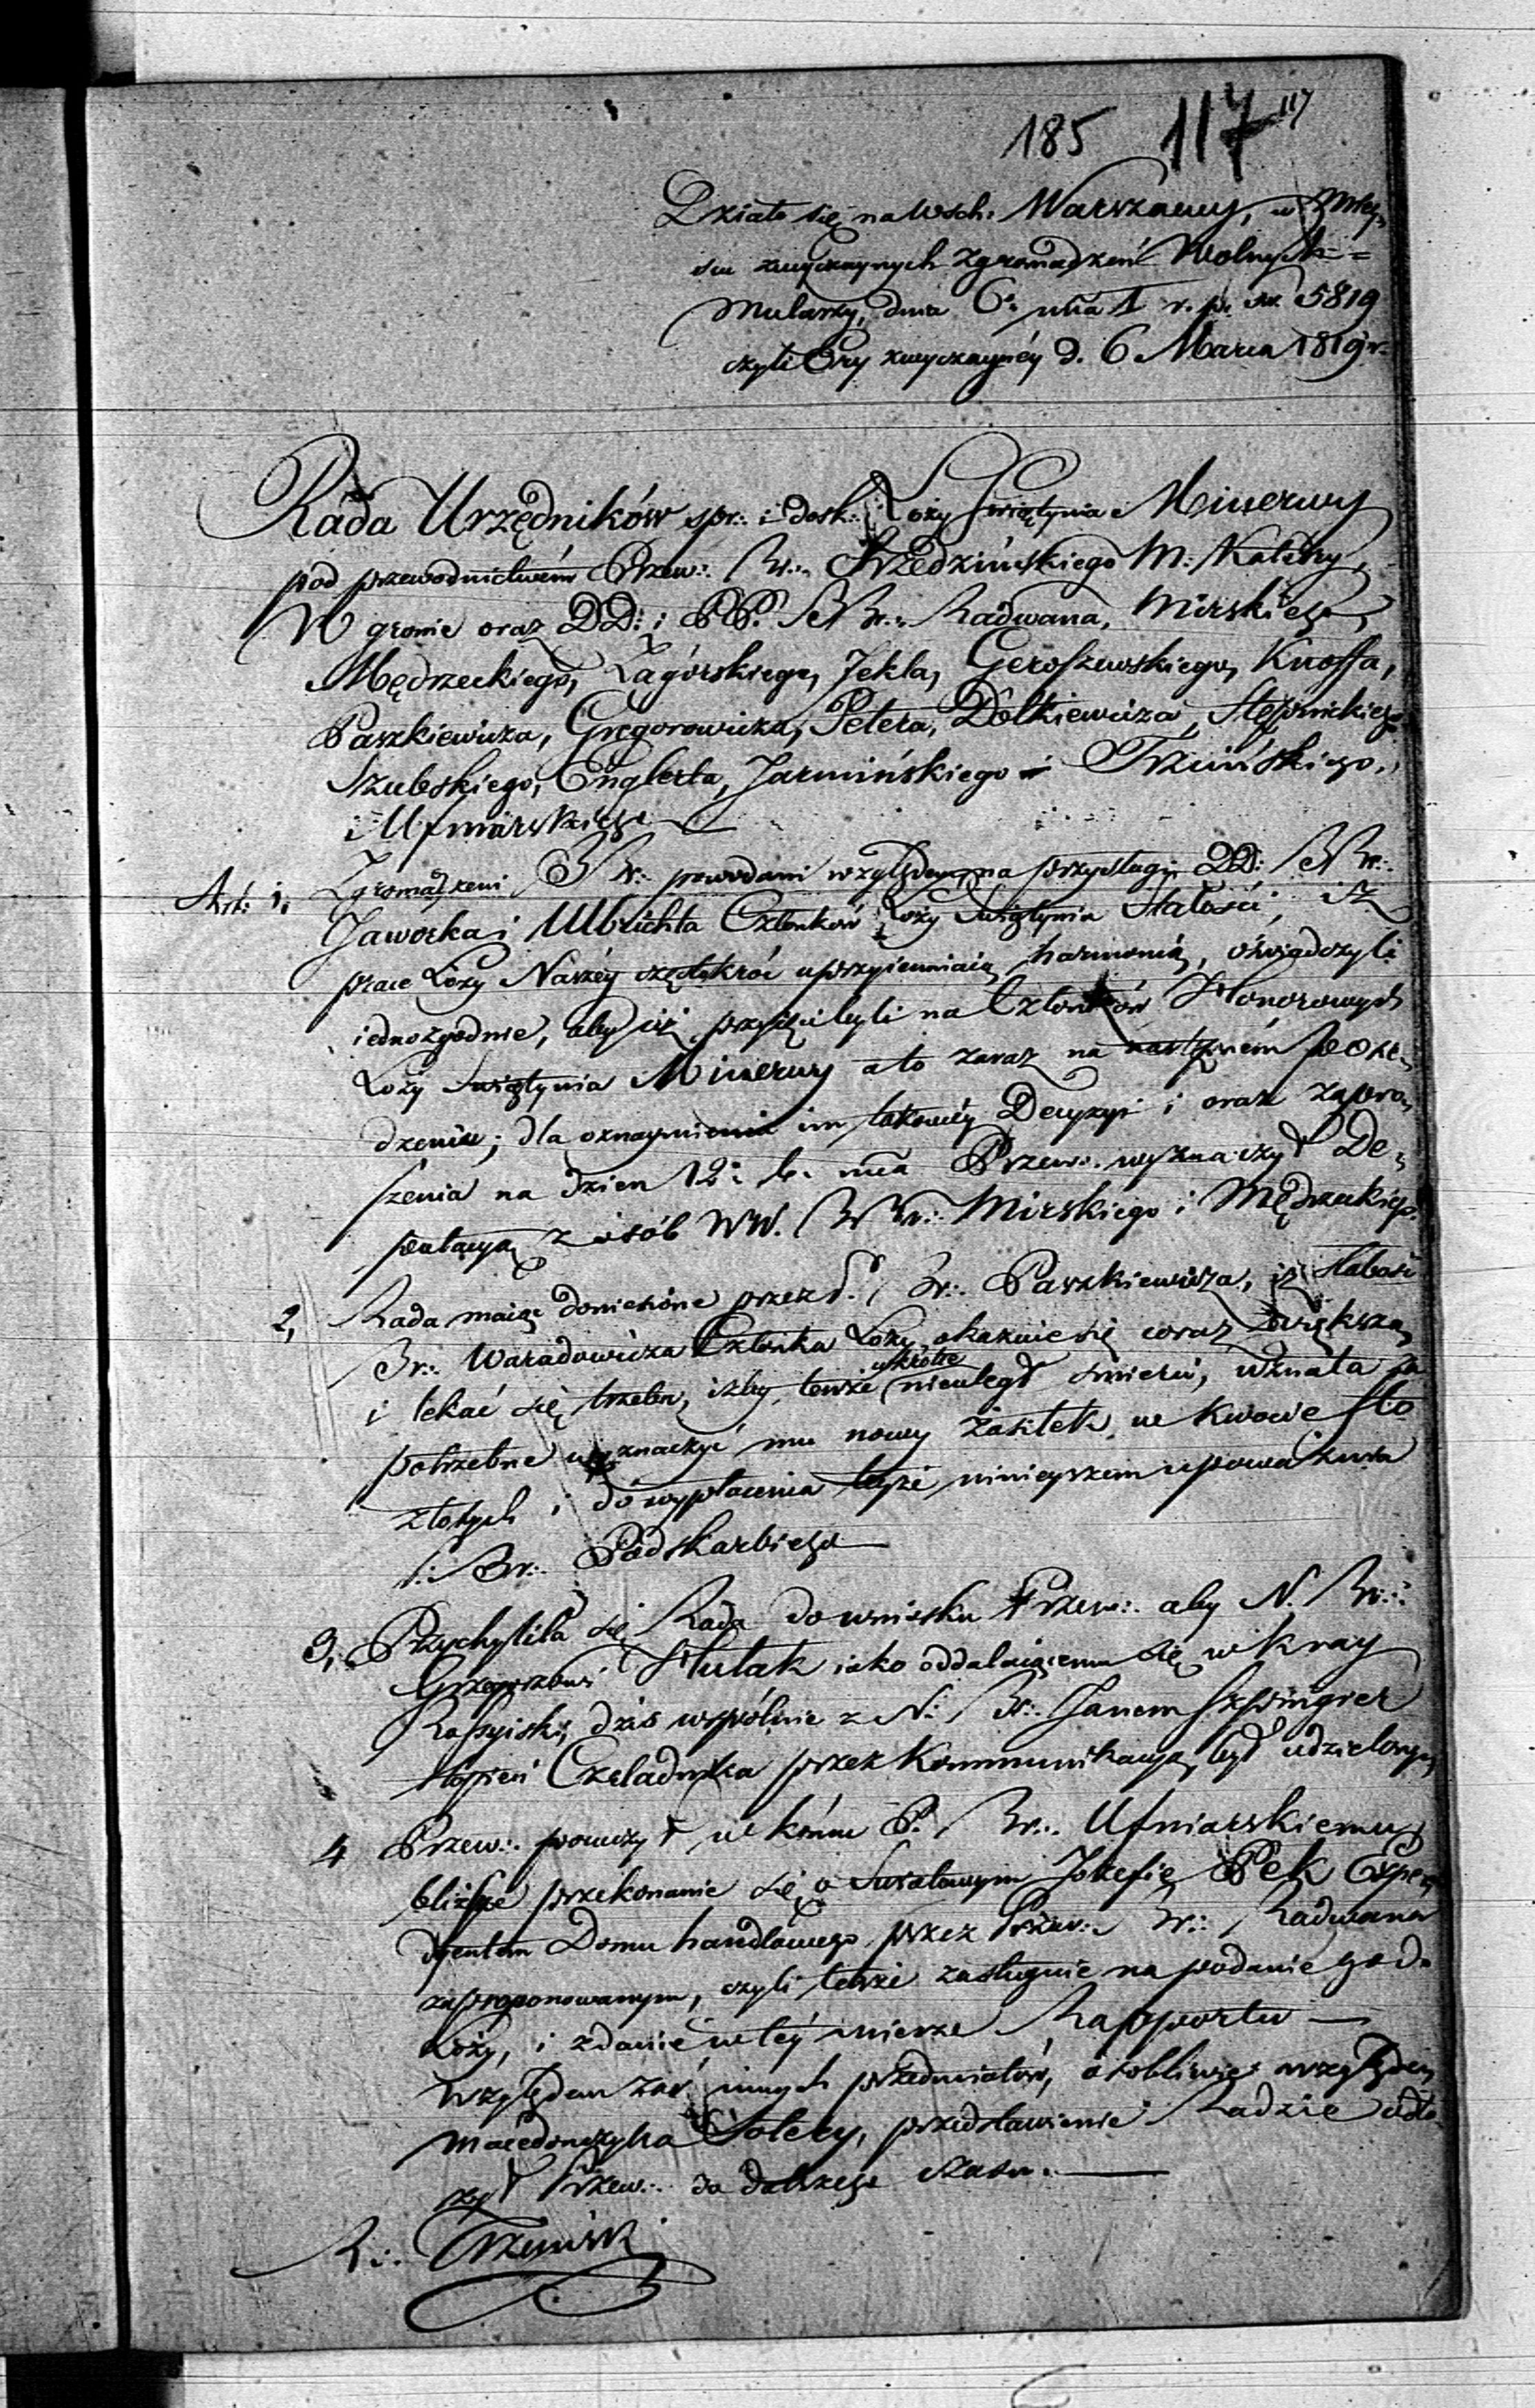 185 117 117
Działo się na Wsch: Warszawy, w Miey-
scu zwyczaynych Zgromadzeń Wolnych=
Mularzy, dnia 6: mca 1 r. p. św. 5819
czyli Ery zwyczayney d. 6 Marca 1819 r.
Rada Urzędników spr:. i dosk:. Loży Świątynia Minerwy
pod przewodnictwem Przew:. Br:. Szrzedzińskiego M: Katedry,
W gronie oraz DD: i PP. BBr:. Radwana, Mirskiego,
Mędrzeckiego, Zagórskiego, Jekla, Geroszewskiego, Knoffa,
Paszkiewicza, Gregorowicza, Petera, Dołkiewicza, Stępnickiego
Szubskiego, Englerta, Jarmińskiego i Trzcińskiego,
i Ufniarskiego
Art: 1. Zgromadzeni BBr: powodami względem na przysługi DD: BBr:.
Jaworka i Ulbrichta Członków Loży Świątynia Stałości, iż
prace Loży Naszéy częstokroć uprzyiemniaią harmonią, oświadczyli
iednozgodnie, aby ciż przyięci byli na Członków Honorowych
Loży Świątynia Minerwy a to zaraz na następném posie-
dzeniu; dla oznaymienia im takowéy Decyzyi i oraz zapro-
szenia na dzien 12: b. mca Przew:. wyznaczył De-
putacyą z osób WW. BBr:. Mirskiego i Mędrzeckiego.
2, Rada maiąc doniesione przez d. Br:. Paszkiewicza, iż słabość
Br:. Waradowicza Członka Loży okazuie się coraz większa,
i lękać się trzeba, iżby tenże wkrótce nieuległ śmierci, uznała za
potrzebne wyznaczyć mu nowy zasiłek w kwocie sto
złotych i do wypłacenia teyże ninieyszem upoważnia
Br:. Podskarbiego
3, Przychyliła się Rada do wniosku Przew:. aby N. Br:.
Grzegorzowi Hutak iako oddalaiącemu się w kray
Rossyiski, dziś wspólnie z N: Br:. Janem Szpingier
stopień Czeladnika przez Kommunikacyą był udzielony,
4 Przew:. poruczył w końcu P. Br:. Ufniarskiemu
bliższe przekonanie się o Światowym Józefie Pek Expe-
dyentem Domu handlowego przez Przew:. Br:. Radwana
zaproponowanym, czyli tenże zasługuie na podanie go do
Loży, i zdanie w téy mierze Rapportu —
Względem zaś innych przedmiotów, osobliwie względem
Macedończyka Sotery, przedstawienie Radzie odło-
żył Przew:. do dalszego czasu. —
Trzciński